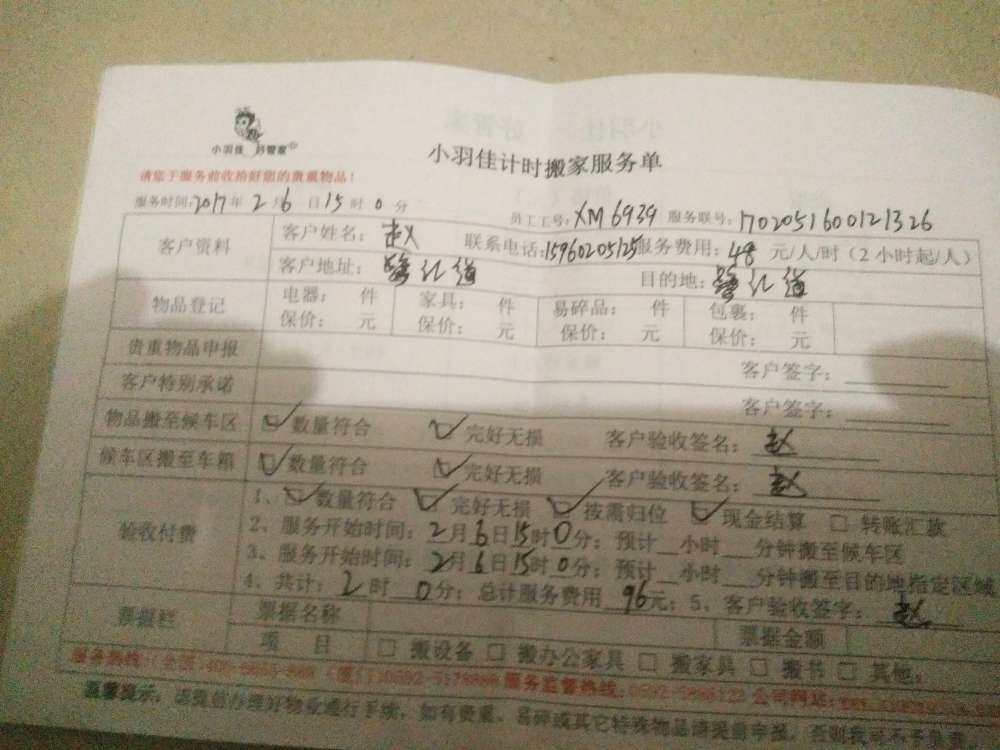 小羽佳 好管家
小羽佳计时搬家服务单
请您于服务前收拾好您的贵重物品！
服务时间：2017年 2月6日15时0分 员工工号：XM6939 服务联号：1702051600121326
客户资料 客户姓名：赵 联系电话：15960205125 服务费用：48 元/人/时（2小时起/人）
客户地址： 目的地：
物品登记 电器： 件 家具： 件 易碎品： 件 包裹： 件
保价： 元 保价： 元 保价： 元 保价： 元
贵重物品申报 客户签字：
客户特别承诺 客户签字：
物品搬至候车区 数量符合 完好无损 客户验收签名：赵
候车区搬至车箱 数量符合 完好无损 客户验收签名：赵
验收付费 1、数量符合 完好无损 按需归位 现金结算 转账汇款
2、服务开始时间：2月6日15时0分；预计__小时__分钟搬至候车区
3、服务开始时间：2月6日15时0分；预计__小时__分钟搬至目的地指定区域
4、共计：2时 0分；总计服务费用 96元；5、客户验收签字：赵
票据栏 票据名称 票据金额
项 目 搬设备 搬办公家具 搬家具 搬书 其他：
服务热线：(全国)
服务监督热线：0592-5898123 公司网址：
温馨提示：请提前办理好物业通行手续，如有贵重、易碎或其它特殊物品请提前申报，否则我司不予负责。